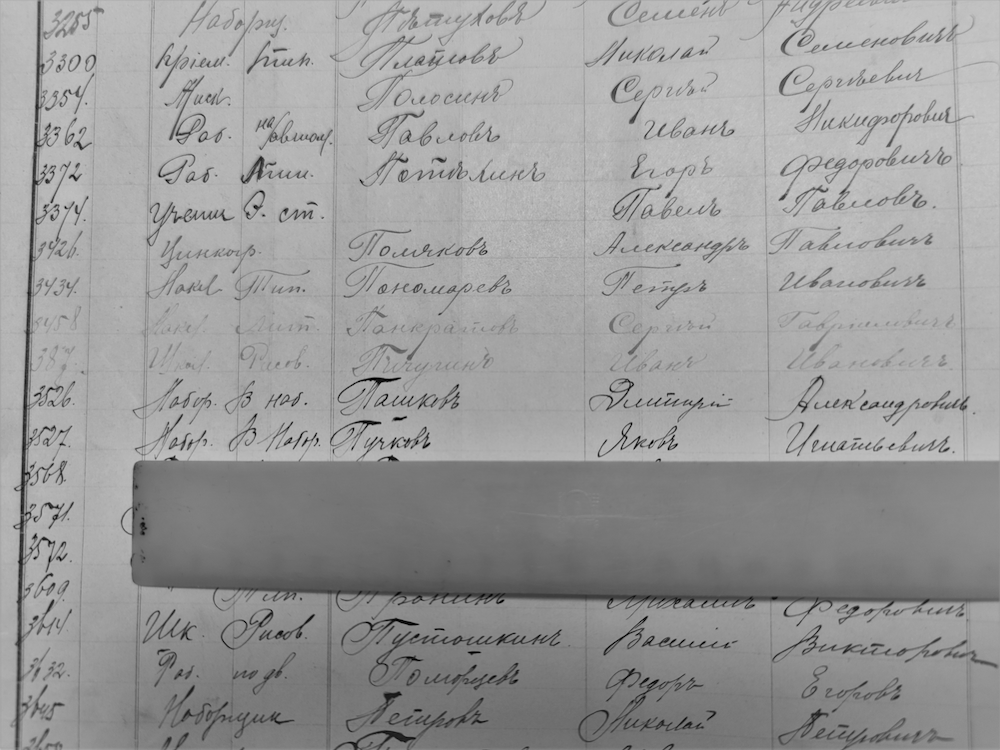 3255 Наборщ. Пѣтуховъ Семенъ Андреевичъ
3300 Пріем. тип. Платовъ Николай Семеновичъ
3354. Полосинъ Сергѣй Сергѣевич
3362 Раб. на Павловъ Иванъ Никифорович
3372 Раб. Лит. Егоръ Федоровичъ
3374. Учении Р. ст. Павелъ Павловъ.
3426. Цинкогр. Поляковъ Александръ Павловичъ
3434. Накл Тип. Пономаревъ Петръ Ивановичъ
3458 Накл. Лит. Панкратовъ Сергѣй Гавриловичъ
387 Рисов. Пичугинъ Иванъ Ивановичъ
3526. Набор. В наб. Пашковъ Дмитрій Александровичъ.
3527. Набор. В Набор. Пучковъ Яковъ Игнатьевичъ.
3568.
3571.
3572.
3609. Тип. Пронинъ Михаилъ Федоровичъ
3614 Шк. Рисов. Пустошкинъ Василій Викторович
3632 Раб. по дв. Поморцевъ Федоръ Егоровъ
3645 Наборщик Петровъ Николай Петрович